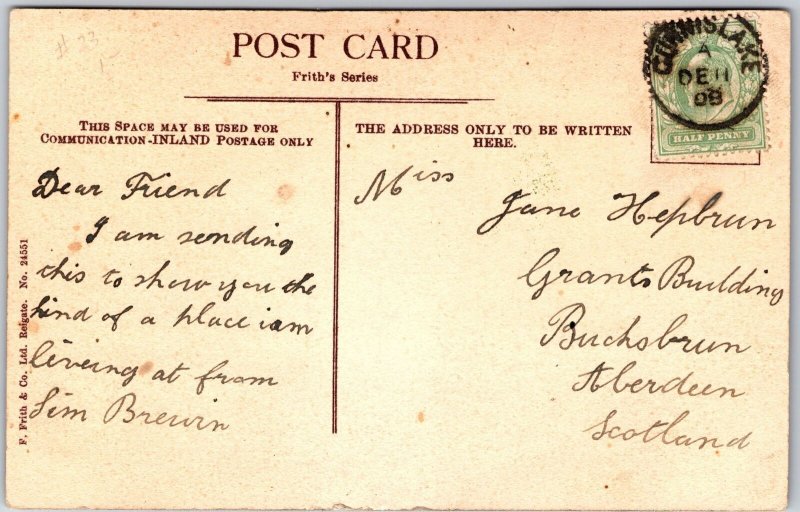 # 23
1
POST CARD
Frith's Series
GUNNISLAKE
A
DE 11
08
HALF PENNY
THIS SPACE MAY BE USED FOR
COMMUNICATION-INLAND POSTAGE ONLY
THE ADDRESS ONLY TO BE WRITTEN
HERE.
Dear Friend
I am sending
this to show you the
kind of a place i am
liveing at from
Sim Brewin
Miss
Jane Hepbrun
Grants Building
Bucksbrun
Aberdeen
Scotland
F. Frith & Co. Ltd. Reigate. No. 24551